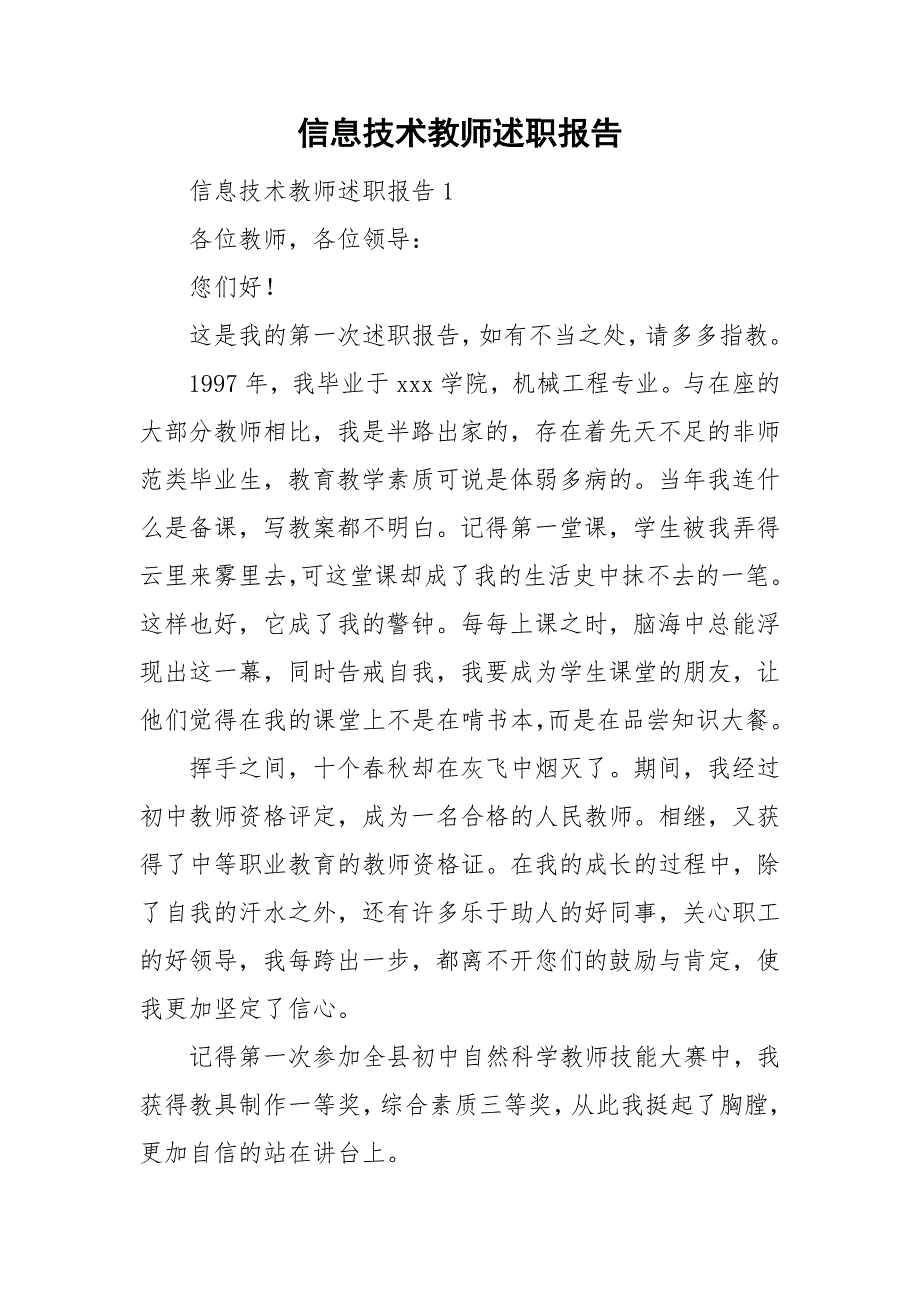 信息技术教师述职报告
信息技术教师述职报告 1
各位教师，各位领导：
您们好！
这是我的第一次述职报告，如有不当之处，请多多指教。
1997 年，我毕业于 xxx 学院，机械工程专业。与在座的
大部分教师相比，我是半路出家的，存在着先天不足的非师
范类毕业生，教育教学素质可说是体弱多病的。当年我连什
么是备课，写教案都不明白。记得第一堂课，学生被我弄得
云里来雾里去，可这堂课却成了我的生活史中抹不去的一笔。
这样也好，它成了我的警钟。每每上课之时，脑海中总能浮
现出这一幕，同时告戒自我，我要成为学生课堂的朋友，让
他们觉得在我的课堂上不是在啃书本，而是在品尝知识大餐。
挥手之间，十个春秋却在灰飞中烟灭了。期间，我经过
初中教师资格评定，成为一名合格的人民教师。相继，又获
得了中等职业教育的教师资格证。在我的成长的过程中，除
了自我的汗水之外，还有许多乐于助人的好同事，关心职工
的好领导，我每跨出一步，都离不开您们的鼓励与肯定，使
我更加坚定了信心。
记得第一次参加全县初中自然科学教师技能大赛中，我
获得教具制作一等奖，综合素质三等奖，从此我挺起了胸膛，
更加自信的站在讲台上。